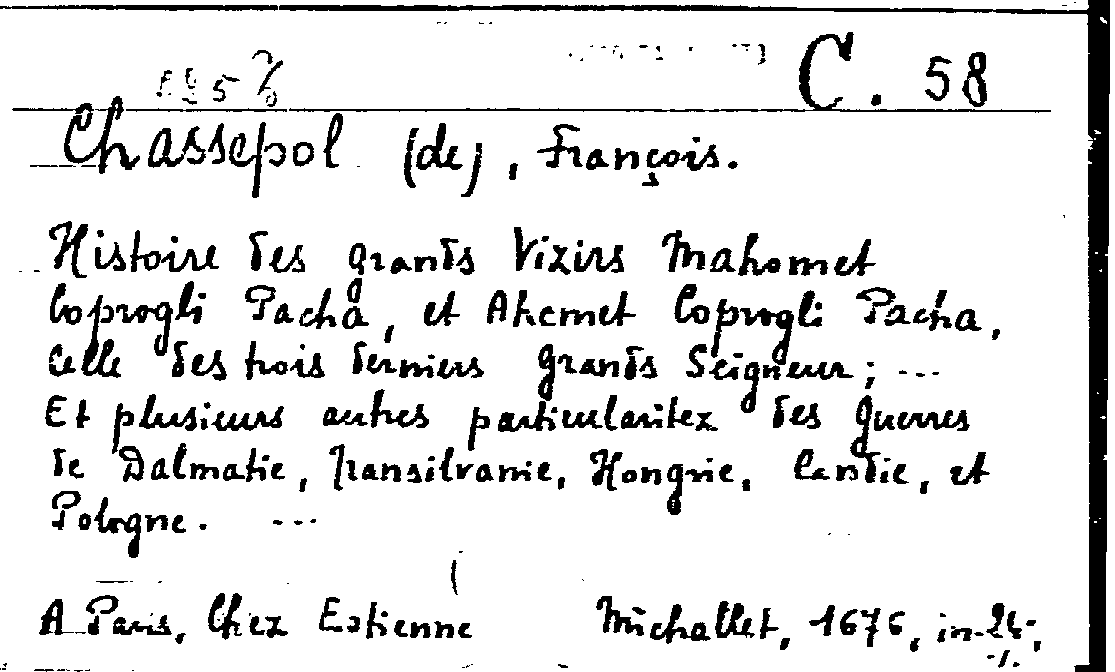 C. 58
Chassepol (de), François.
Histoire des grands Vizirs Mahomet
Coprogli Pacha, et Ahcmet Coprogli Pacha,
Celle des trois derniers grands Seigneur; ...
Et plusieurs autres particularitez des guerres
de Dalmatie, Transilvanie, Hongrie, Candie, et
Pologne. ...
A Paris, Chez Estienne Michallet, 1676, in-